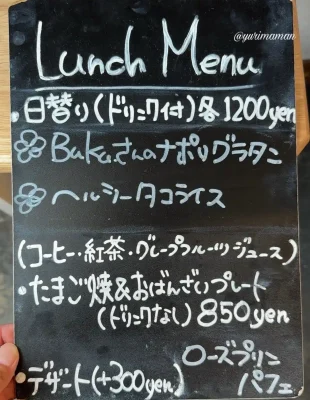 @yurimaman
Lunch Menu
・日替り(ドリンク付)各1200yen
Bukuさんのナポリグラタン
ヘルシータコライス
(コーヒー・紅茶・グレープフルーツジュース)
・たまご焼&おばんざいプレート
(ドリンクなし) 850yen
ローズプリン
・デザート(+300yen) パフェ